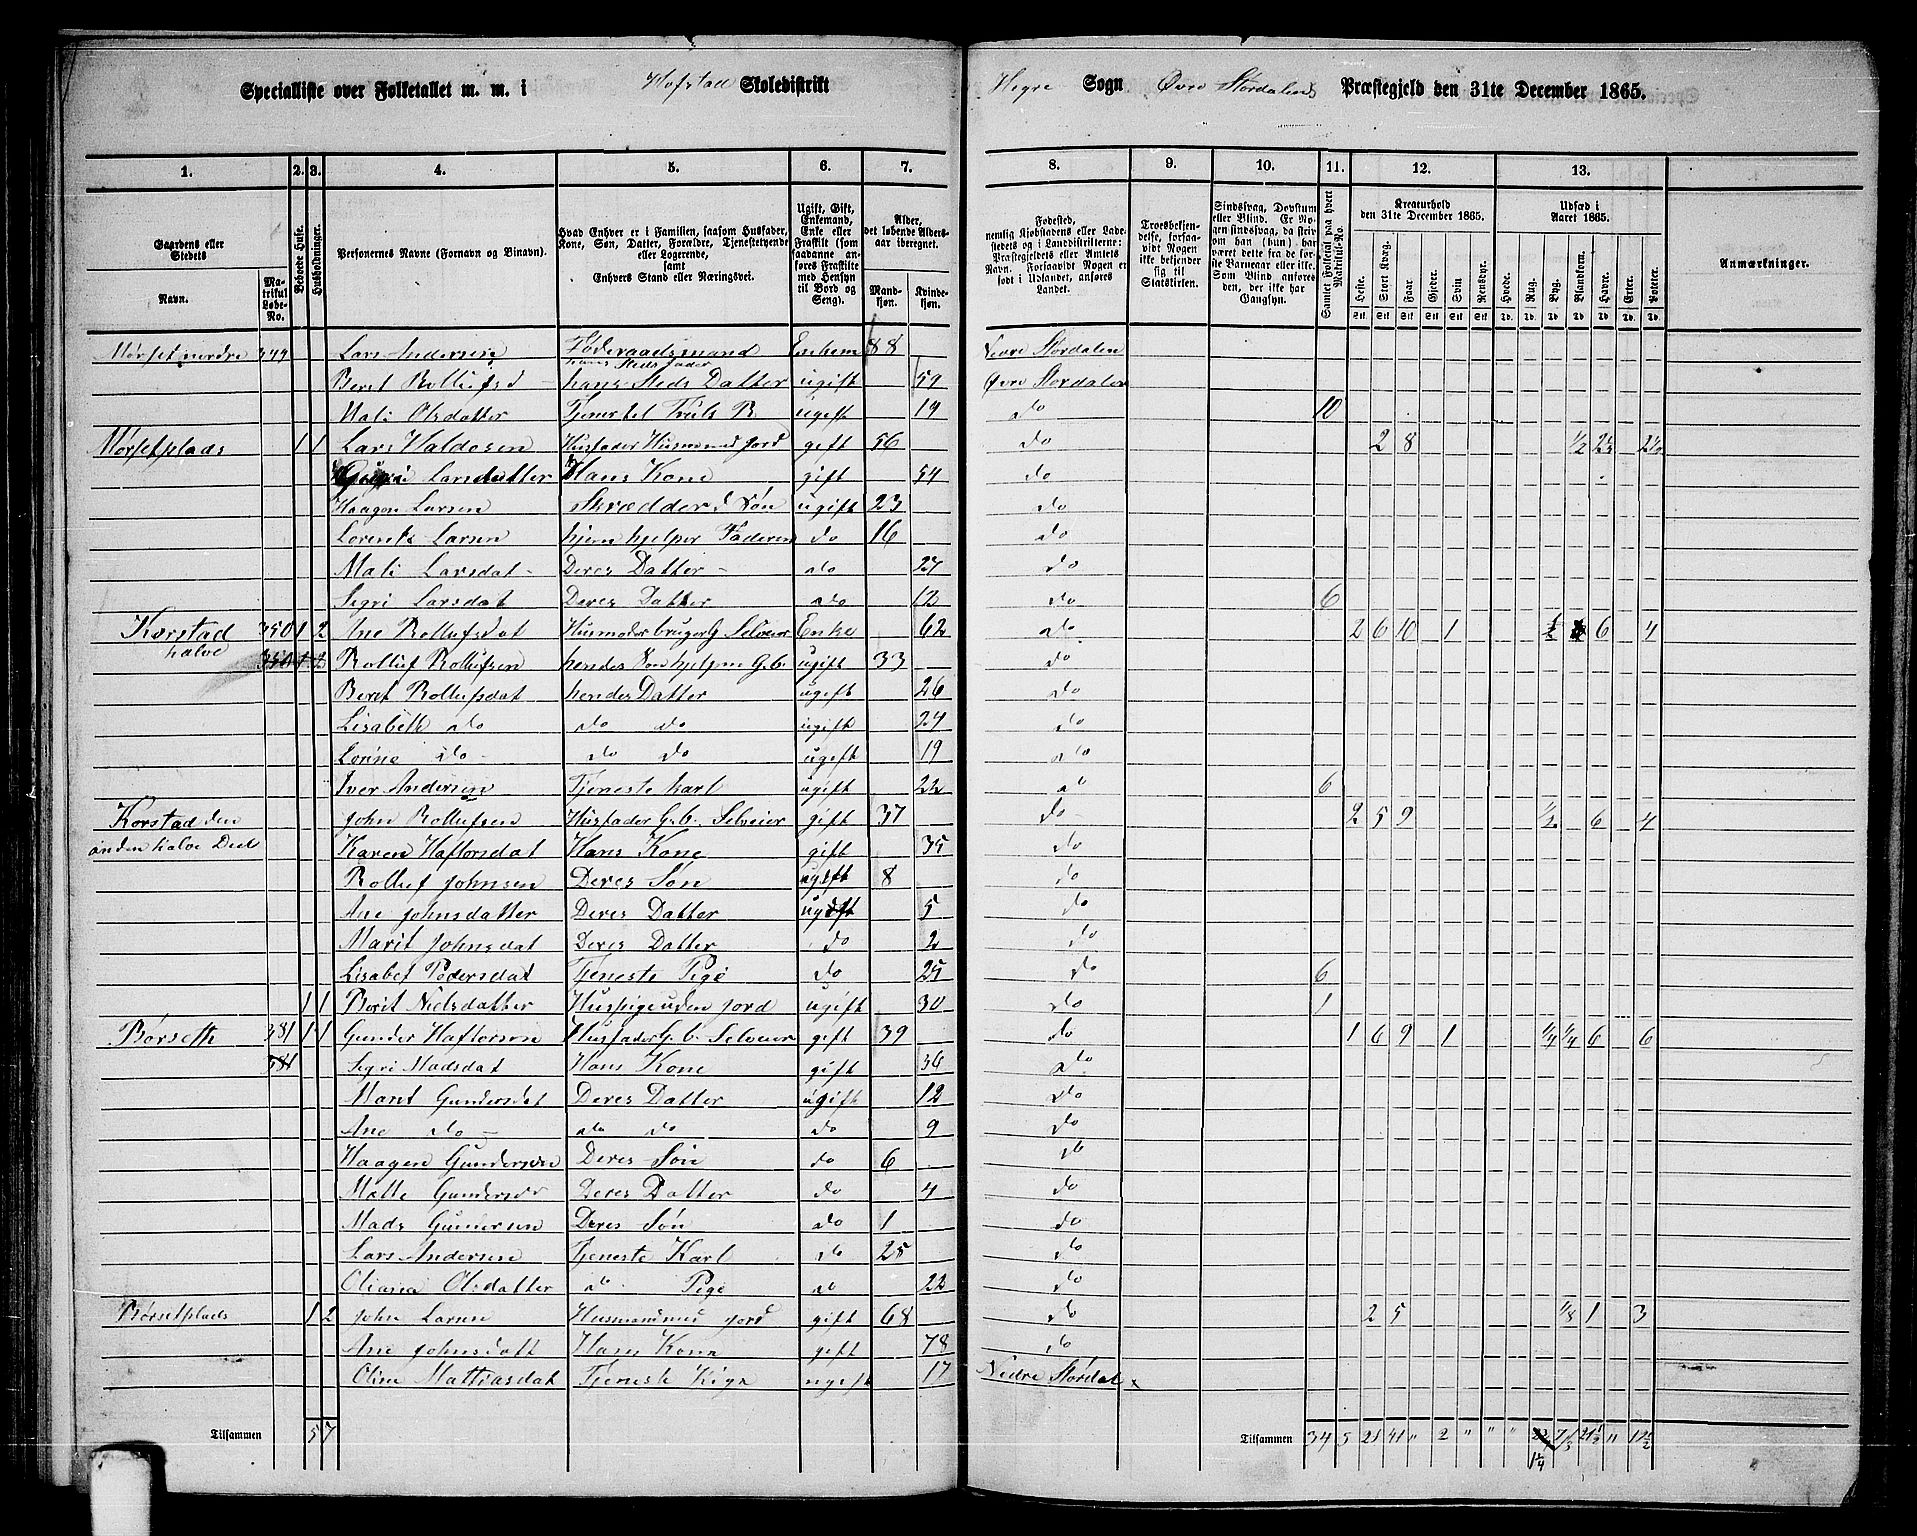 Specialliste over Folketallet m. m. i Hofstad Skoledistrikt Hegre Sogn Øvre Stordalens Præstegjeld den 31te December 1865.
1. 2. 3. 4. 5. 6. 7. 8. 9. 10. 11. 12. 13.
Gaardens eller Stedets Navn. Matrikul Løbe-No. Beboede Huse. Husholdninger. Personernes Navne (Fornavn og Binavn). Hvad Enhver er i Familien, saasom Husfader, Kone, Søn, Datter, Forældre, Tjenestetyende eller Logerende, samt Enhvers Stand eller Næringsvei. Ugift, Gift, Enkemand, Enke eller Fraskilt (som saadanne anføres Fraskilte med Hensyn til Bord og Seng). Alder, det løbende Aldersaar iberegnet. Mandkjøn. Kvindekjøn.
Fødested, nemlig Kjøbstadens eller Ladestedets og i Landdistrikterne: Præstegjeldets eller Amtets Navn. Forsaavidt Nogen er født i Udlandet, anføres Landet. Troesbekjendelse, forsaavidt Nogen ikke bekjender sig til Statskirken. Sindssvag, Døvstum eller Blind. Er Nogen sindssvag, da skriv om han (hun) har været dette fra de første Barneaar eller ikke. Som Blind anføres den, der ikke har Gangsyn. Samlet Folketal paa hvert Matrikul-No. Kreaturhold den 31te December 1865. Heste. Stort Kvæg. Faar. Gjeder. Svin. Rensdyr. Udsæd i Aaret 1865. Hvede. Rug. Byg. Blandkorn. Havre. Erter. Poteter. Anmærkninger.
Mørset nordre 349 Lars Andersen Føderaadsmand Enkem 88 Nedre Stordalen
hans Steds fader
Beret Rollufsd - hans Steds Datter ugift 59 Øvre Stordalen
Mali Olsdatter Tjener til B. ugift 19 do 10
Mørsetplads 1 1 Lars Haldosen Husfader Husmand m Jord gift 56 do 2 8 ½ 2½ 2½
Larsdatter Hans Kone gift 54 do
Haagen Larsen Skrædder Søn ugift 23 do
Lorents Larsen hjem hjelper Faderen do 16 do
Mali Larsdat - Deres Datter - do 27 do
Segri Larsdat Deres Datter do 12 do 6
Korstad 350 1 2 Ane Rollufsdat Husmoder bruger G. Selveier Enke 62 do 2 6 10 1 ½ 6 4
halve Rolluf Rollufsen hendes Søn hjelper G.b. ugift 33 do
Beret Rollufsdat hendes Datter ugift 26 do
Lisabeth do do do ugift 24 do
Lorine do - do do ugift 19 do
Iver Andersen Tjeneste karl ugift 22 do 6
Korstad den John Rollufsen Husfader G.b. Selveier gift 37 do 2 5 9 ½ 6 4
anden halve Deel Karen Haftorsdat Hans Kone gift 35 do
Rolluf Johnsen Deres Søn ugift 8 do
Ane Johnsdatter Deres Datter ugift 5 do
Marit Johnsdat Deres Datter do 2 do
Lisabet Pedersdat Tjeneste Pige do 25 do 6
1 1 Berit Nielsdatter Huspige uden Jord ugift 30 do 1
Børseth 381 1 1 Gunder Haftorson Husfader G.b. Selveier gift 39 do 1 6 9 1 ¼ ¼ 6 6
Segri Madsdat Hans Kone gift 36 do
Maret Gundersdat Deres Datter ugift 12 do
Ane do - do do do 9 do
Haagen Gundersen Deres Søn do 6 do
Matte Gundersdr Deres Datter do 4 do
Mads Gundersen Deres Søn do 1 do
Lars Andersen Tjeneste Karl do 25 do
Oliana Olsdatter do Pige do 22 do
Børsetplads 1 2 John Larsen Husmand m Jord gift 68 do 2 5 ⅛ 1 3
Ane Johnsdatt Hans Kona gift 78 do
Oline Mattiasdat Tjeneste Piga ugift 17 Nedre Stordalen
Tilsammen 5 7 Tilsammen 34 5 21 41 " 2 " " " 1¼ 21½ " 19½